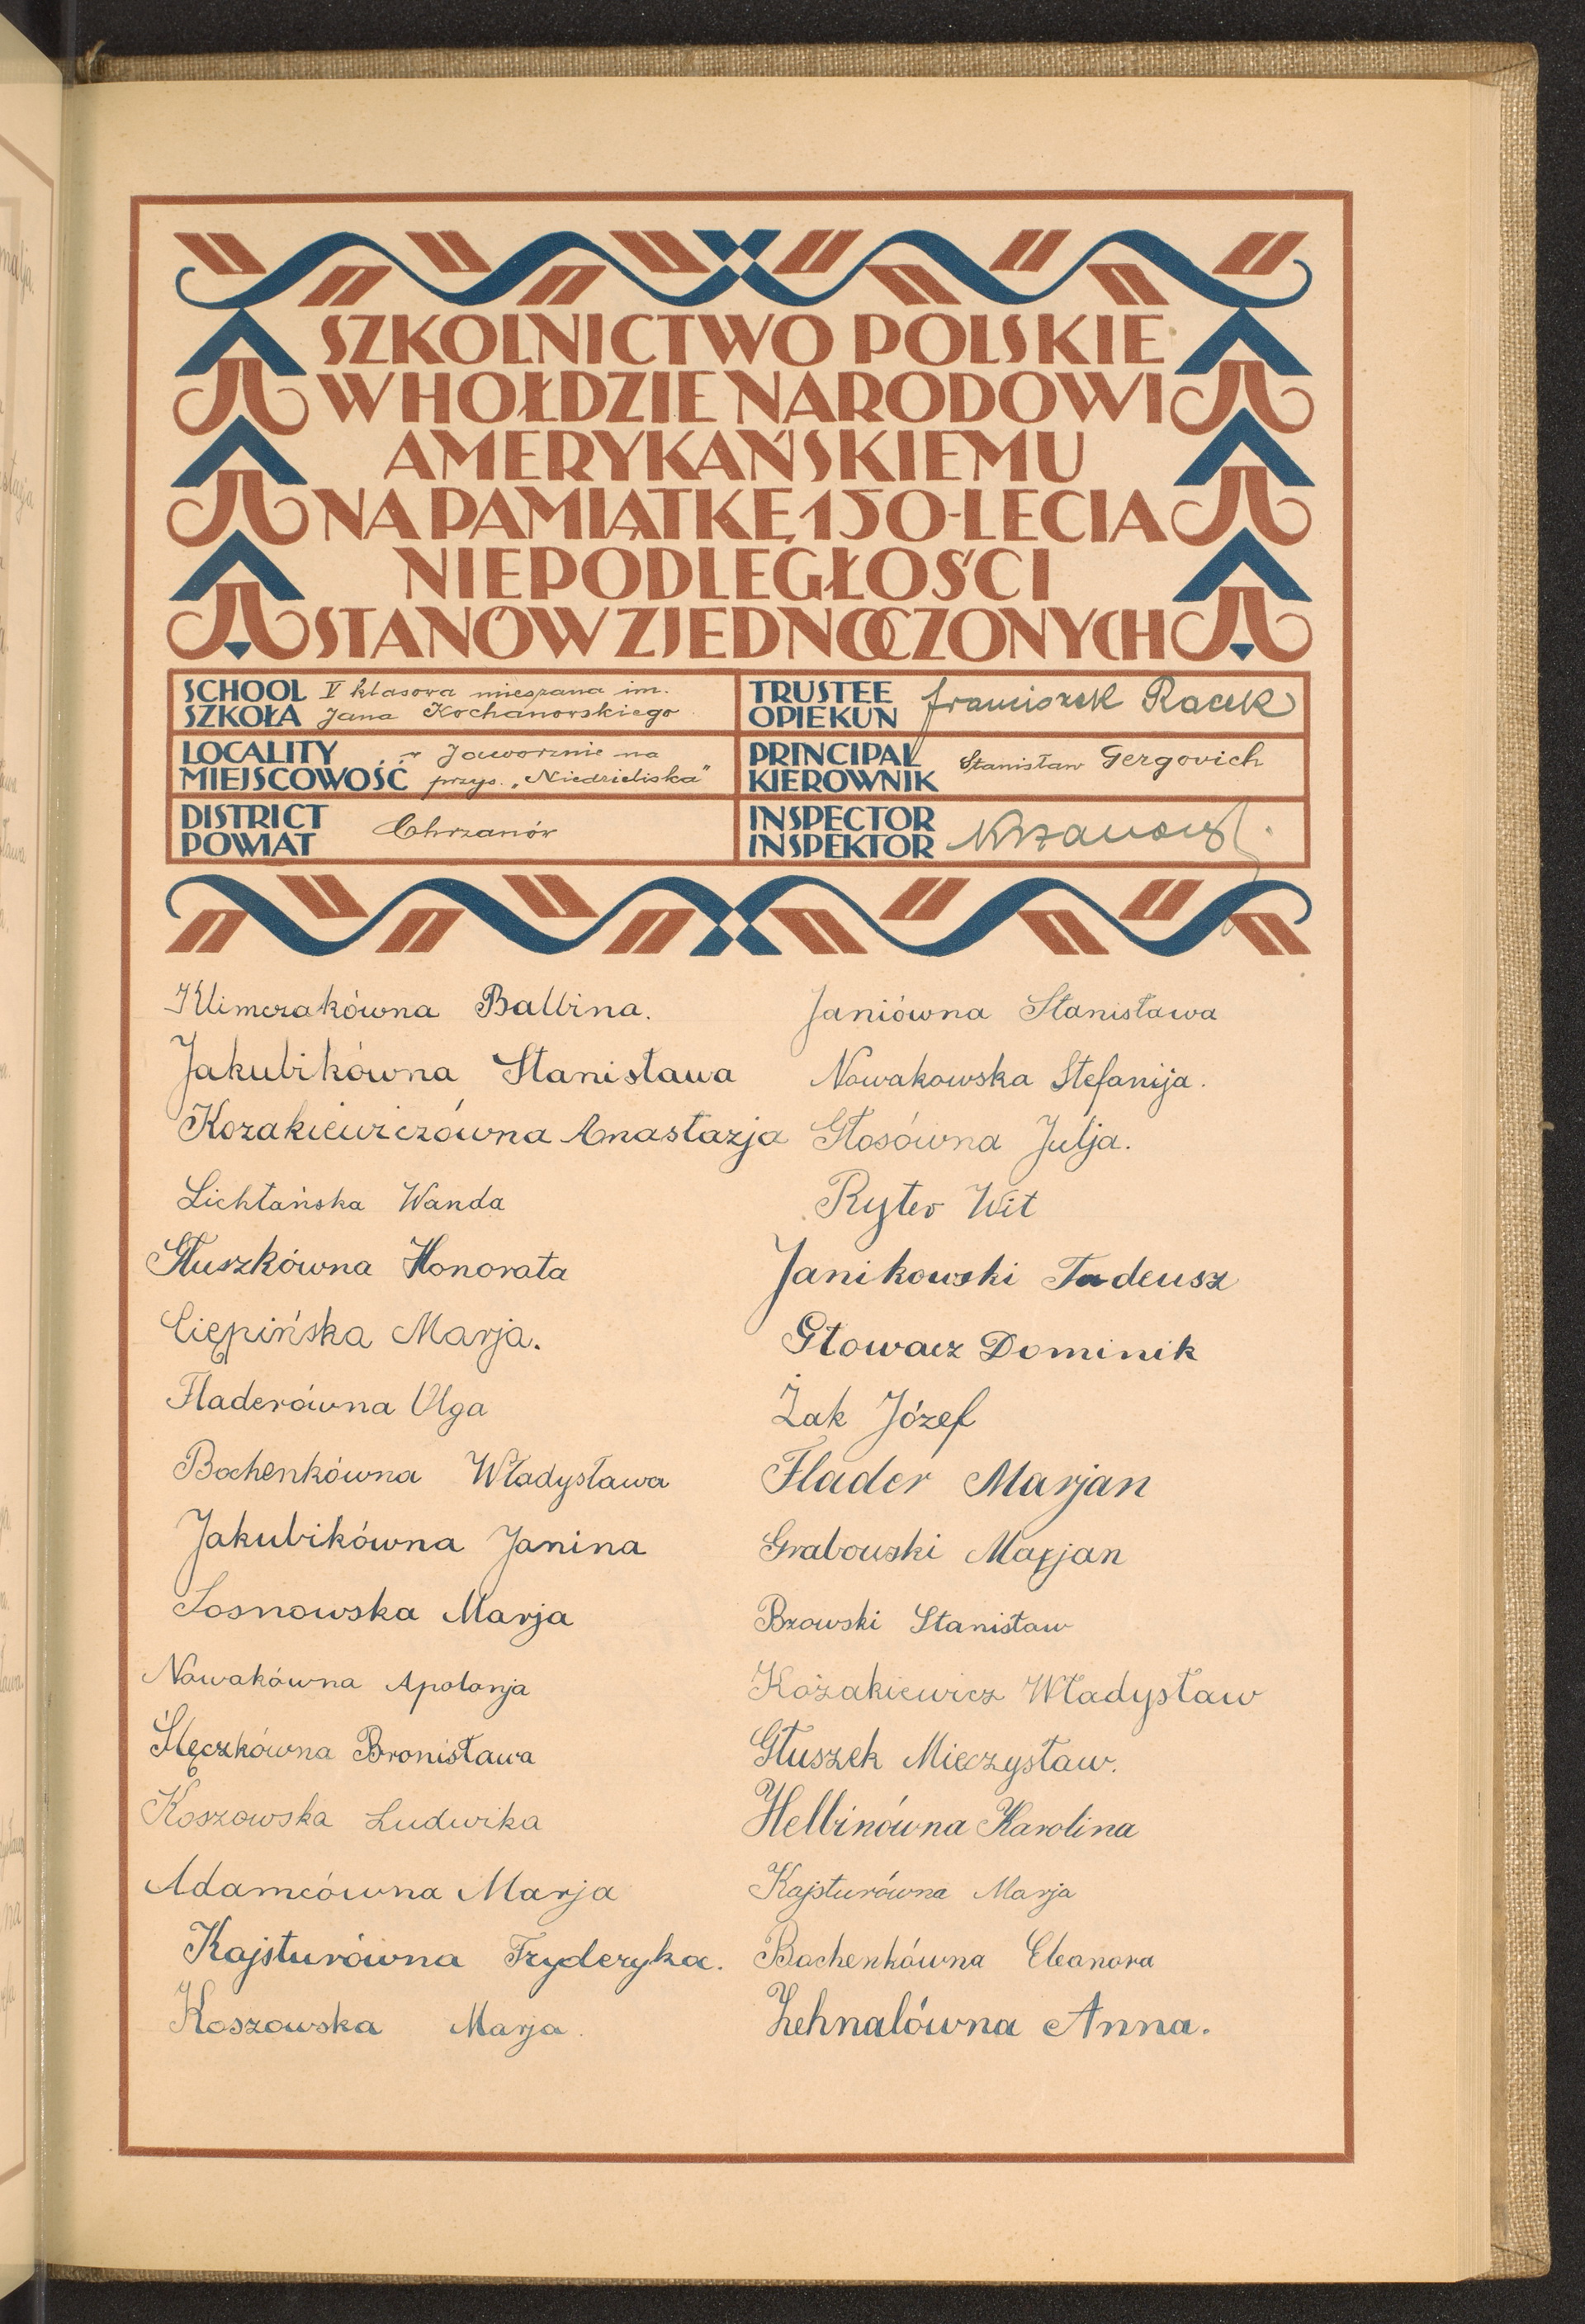 SZKOLNICTWO POLSKIE
W HOŁDZIE NARODOWI
AMERYKAŃSKIEMU
NA PAMIĄTKĘ 150-LECIA
NIEPODLEGŁOŚCI
STANÓW ZJEDNOCZONYCH
SCHOOL V klasowa mieszana im.
SZKOŁA Jana Kochanowskiego
LOCALITY w Jaworznie na
MIEJSCOWOŚĆ przys. „Niedzieliska"
DISTRICT
POWIAT Chrzanów
TRUSTEE
OPIEKUN Franciszek Racek
PRINCIPAL
KIEROWNIK Stanisław Gergovich
INSPECTOR
INSPEKTOR
Klimczakówna Balbina.
Jakubikówna Stanisława
Kozakiewiczówna Anastazja
Lichtańska Wanda
Głuszkówna Honorata
Ciępińska Marja.
Fladerówna Olga
Bochenkówna Władysława
Jakubikówna Janina
Sosnowska Marja
Nowakówna Apolonja
Ślęczkówna Bronisława
Koszowska Ludwika
Adamcówna Marja
Kajsturówna Fryderyka.
Koszowska Marja.
Janiówna Stanisława
Nowakowska Stefanija.
Głosówna Julja.
Ryter Wit
Janikowski Tadeusz
Głowacz Dominik
Żak Józef
Flader Marjan
Grabowski Marjan
Bzowski Stanisław
Kozakiewicz Władysław
Głuszek Mieczysław.
Helbinówna Karolina
Kajsturówna Marja
Bochenkówna Eleonora
Zehnalówna Anna.